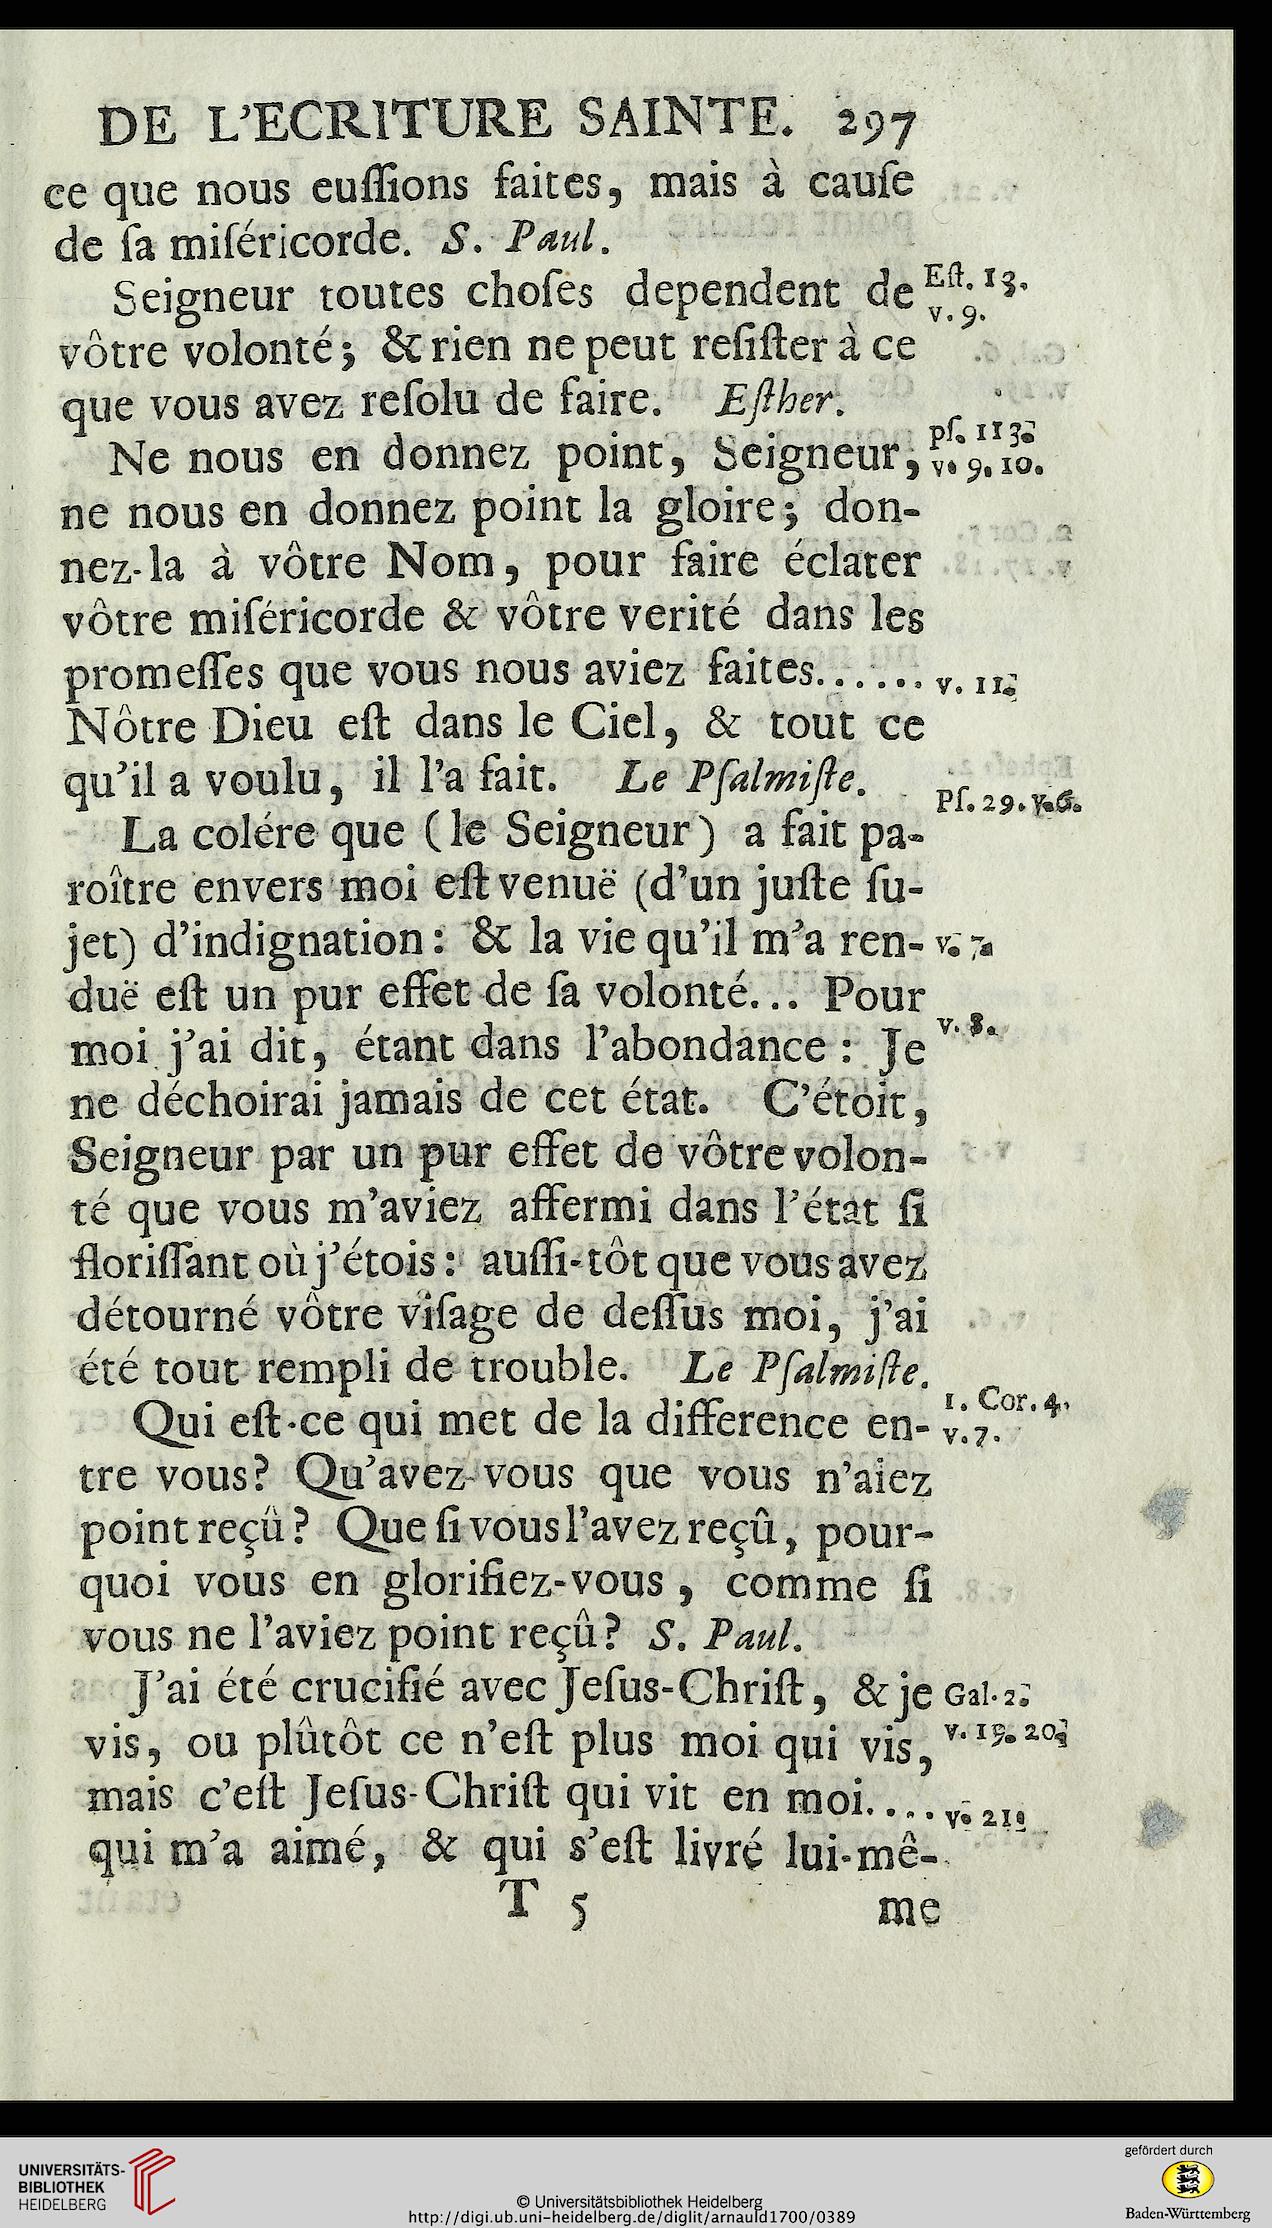 DE L'ECRITURE SAINTE. 297
ce que nous euſſions faites, mais à cauſe
de ſa miſéricorde. S. Paul.
Seigneur toutes choſes dependent de
Eſt. 13.
v. 9.
vôtre volonté; & rien ne peut reſiſter à ce
que vous avez reſolu de faire. Eſther.
Ne nous en donnez point, Seigneur,
pſ. 113.
v. 9. 10.
ne nous en donnez point la gloire; don-
nez-la à vôtre Nom, pour faire éclater
vôtre miſéricorde & vôtre verité dans les
promeſſes que vous nous aviez faites......
v. 11.
Nôtre Dieu eſt dans le Ciel, & tout ce
qu'il a voulu, il l'a fait. Le Pſalmiſte.
Pſ. 29. v. 6.
La colére que (le Seigneur) a fait pa-
roître envers moi eſt venuë (d'un juſte ſu-
jet) d'indignation: & la vie qu'il m'a ren-
v. 7.
duë eſt un pur effet de ſa volonté... Pour
v. 8.
moi j'ai dit, étant dans l'abondance: Je
ne déchoirai jamais de cet état. C'étoit,
Seigneur par un pur effet de vôtre volon-
té que vous m'aviez affermi dans l'état ſi
floriſſant où j'étois: auſſi-tôt que vous avez
détourné vôtre viſage de deſſus moi, j'ai
été tout rempli de trouble. Le Pſalmiſte.
Qui eſt-ce qui met de la difference en-
1. Cor. 4.
v. 7.
tre vous? Qu'avez-vous que vous n'aiez
point reçû? Que ſi vous l'avez reçû, pour-
quoi vous en glorifiez-vous, comme ſi
vous ne l'aviez point reçû? S. Paul.
J'ai été crucifié avec Jeſus-Chriſt, & je
Gal. 2.
v. 19. 20.
vis, ou plûtôt ce n'eſt plus moi qui vis,
mais c'eſt Jeſus-Chriſt qui vit en moi....
v. 21.
qui m'a aimé, & qui s'eſt livré lui-mê-
T 5 me
UNIVERSITÄTS-
BIBLIOTHEK
HEIDELBERG
© Universitätsbibliothek Heidelberg
http://digi.ub.uni-heidelberg.de/diglit/arnauld1700/0389
gefördert durch
Baden-Württemberg